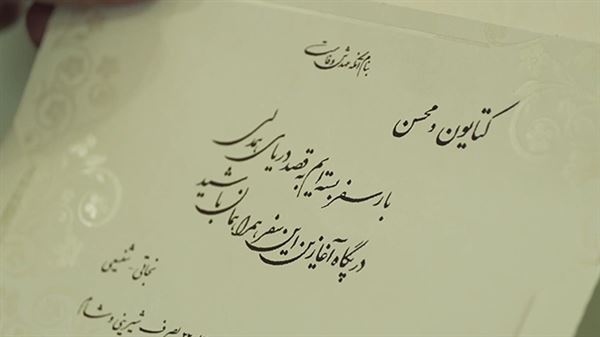 بنام آنکه مهدش وفاست
کتایون و محسن
بار سفر بسته ایم به قصد دریای همدلی
در پگاه آغازین این سفر همراهمان باشید
نجاتی - شفیعی
۲۲ بصرف شیرینی و شام